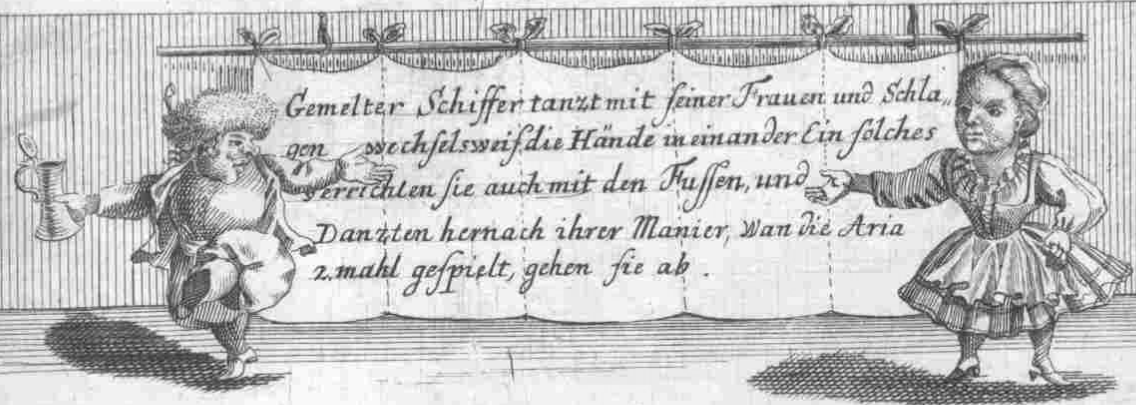 Gemelter Schiffer tanzt mit seiner Frauen und Schla„
gen wechselsweis die Hände in einander Ein solches
verrichten sie auch mit den Fussen, und
Danzten hernach ihrer Manier, Wan die Aria
2. mahl gespielt, gehen sie ab.